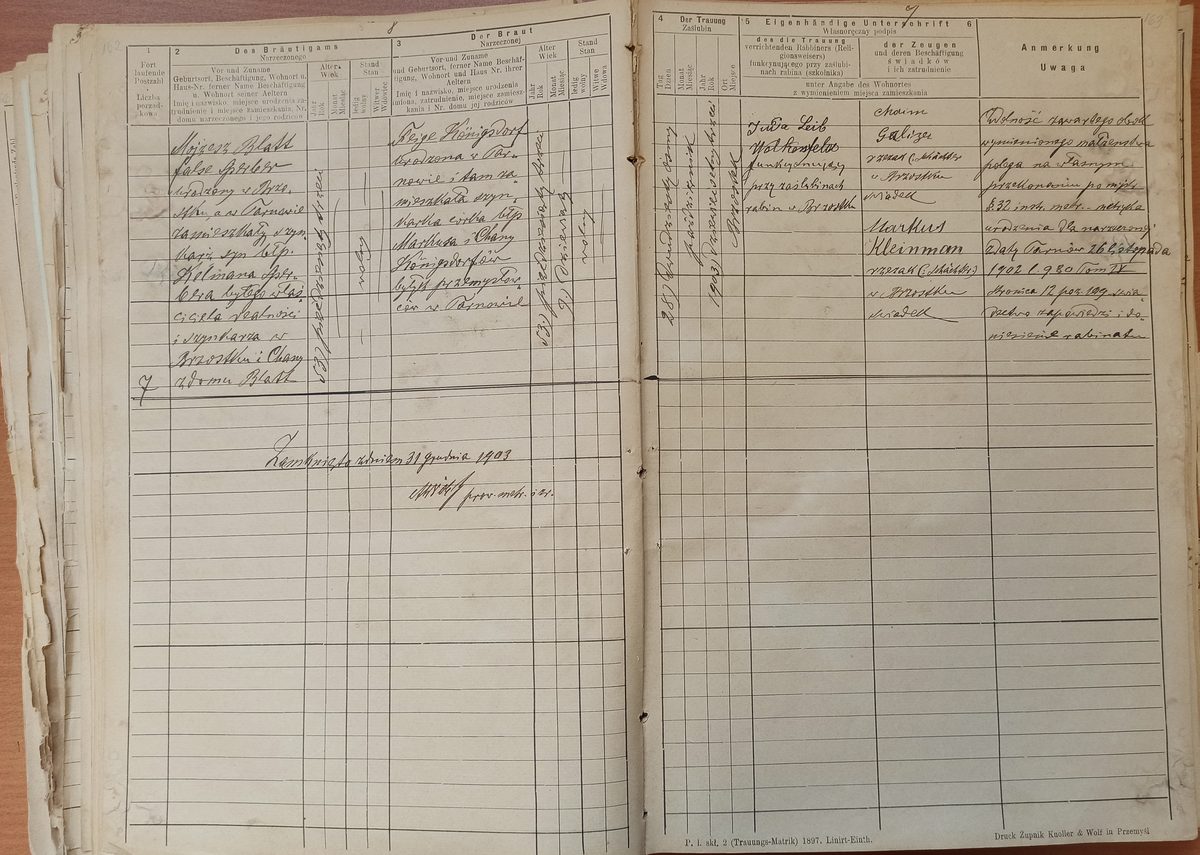 162
8
1
Fort
laufende
Postzahl
Liczba
porząd-
kowa
2
Des Bräutigams
Narzeczonego
Vor-und Zuname
Geburtsort, Beschäftigung, Wohnort u.
Haus-Nr. ferner Name Beschäftigung
u. Wohnort seiner Aeltern
Imię i nazwisko, miejsce urodzenia za-
trudnienie i miejsce zamieszkania, Nr.
domu narzeczonego i jego rodziców
Alter
Wiek
Jahr
Rok
Monat
Miesiąc
Stand
Stan
ledig
wolny
Witwer
Wdowiec
3
Der Braut
Narzeczonej
Vor-und Zuname
und Geburtsort, ferner Name Beschäf-
tigung, Wohnort und Haus Nr. ihrer
Aeltern
Imię i nazwisko, miejsce urodzenia
miona, zatrudnienie, miejsce zamiesz-
kania i Nr. domu jej rodziców
Alter
Wiek
Jahr
Rok
Monat
Miesiąc
Stand
Stan
ledig
wolny
Witwe
Wdowa
7
Mojżesz Blatt
false Sperber
urodzony w Brzo-
stku, a w Tarnowie
zamieszkały szyn
karz, syn błp.
Kelmana Sper-
bera byłego właś
ciciela realności
i szynkarza w
Brzostku i Chany
z domu Blatt
53) pięćdziesiąt trzeci
wolny
Feige Königsdorf
urodzona w Tar-
nowie i tam za-
mieszkała szyn-
karka córka błp.
Markusa i Chany
Königsdorfów
byłych przemysłow-
ców w Tarnowie
53) pięćdziesiąt trzeci
wolny
Zamknięto z dniem 31 grudnia 1903
prow. metr. izr.
9
163
4
Der Trauung
Zaślubin
Tag
Dzień
Monat
Miesiąc
Jahr
Rok
Ort
Miejsce
5
Eigenhändige Unterschrift
Własnoręczny podpis
6
des die Trauung
verrichtenden Rabbiners (Reli-
gionsweisers)
funkcyonującego przy zaślubi-
nach rabina (szkolnika)
der Zeugen
und deren Beschäftigung
świadków
i ich zatrudnienie
unter Angabe des Wohnortes
z wymienieniem miejsca zamieszkania
Anmerkung
Uwaga
28) dwudziesty ósmy
październik
1903) dziewięćset trzeci
Brzostek
Juda Leib
Wolkenfeld
funkcyonujący
przy zaślubinach
rabin w Brzostku
Chaim
Galizer
rzezak (Schächter)
w Brzostku
świadek
Markus
Kleinman
rzezak (Schächter)
w Brzostku
świadek
Ważność zawartego obok
wymienionego małżeństwa
polega na własnym
przekonaniu po myśli
§. 32 instr. metr. – metryka
urodzenia dla narzeczonej
z daty Tarnów 26 listopada
1902 l. 980 Tom IV
stronica 12 poz. 199 świa-
dectwo zapowiedzi i do-
niesienie rabinatu
P. l. skł. 2 (Trauungs-Matrik) 1897. Linirt-Einth.
Druck Żupnik Knoller & Wolf in Przemyśl